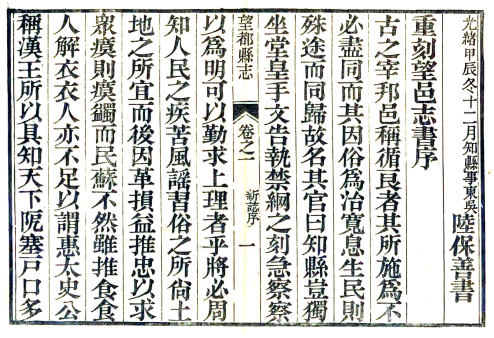 光緒甲辰冬十二月知縣事東吳陸保善書
重刻望邑志書序
古之宰邦邑稱循良者其所施為不
必盡同而其因俗為治寬息生民則
殊途而同歸故名其官曰知縣豈獨
坐堂皇手文告執禁綱之刻急察察
望都縣志 卷之一 新誌序 一
以為明可以勤求上理者乎將必周
知人民之疾苦風謠書俗之所尙土
地之所宜而後因革損益推忠以求
衆瘼則瘼蠲而民蘇不然雖推食食
人解衣衣人亦不足以謂惠太史公
稱漢王所以具知天下阨塞戶口多